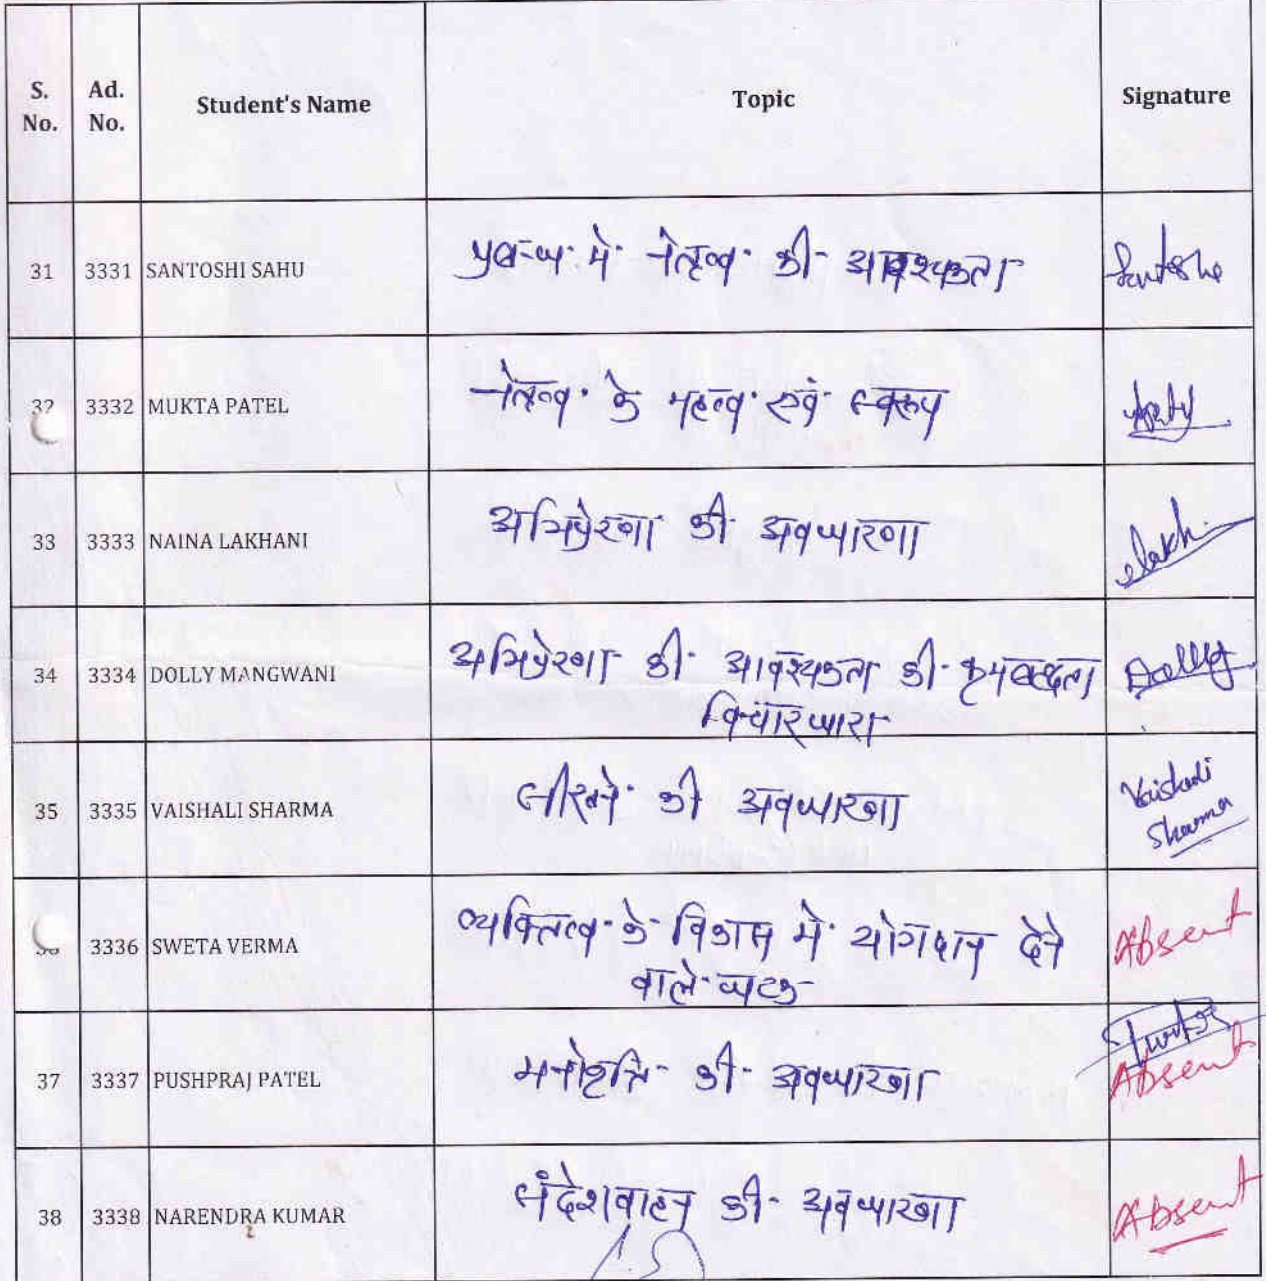 S. No. Ad. No. Student's Name Topic Signature
31 3331 SANTOSHI SAHU प्रबन्ध में नेतृत्व की आवश्यकता Santoshi
32 3332 MUKTA PATEL नेतृत्व के महत्व एवं स्वरूप
33 3333 NAINA LAKHANI अभिप्रेरणा की अवधारणा
34 3334 DOLLY MANGWANI अभिप्रेरणा की आवश्यकता की क्रमबद्धता Dolly
विचारधारा
35 3335 VAISHALI SHARMA सीखने की अवधारणा Vaishali
Sharma
3336 SWETA VERMA व्यक्तित्व के विकास में योगदान देने Absent
वाले घटक
37 3337 PUSHPRAJ PATEL मनोवृत्ति की अवधारणा Absent
38 3338 NARENDRA KUMAR संदेशवाहन की अवधारणा Absent